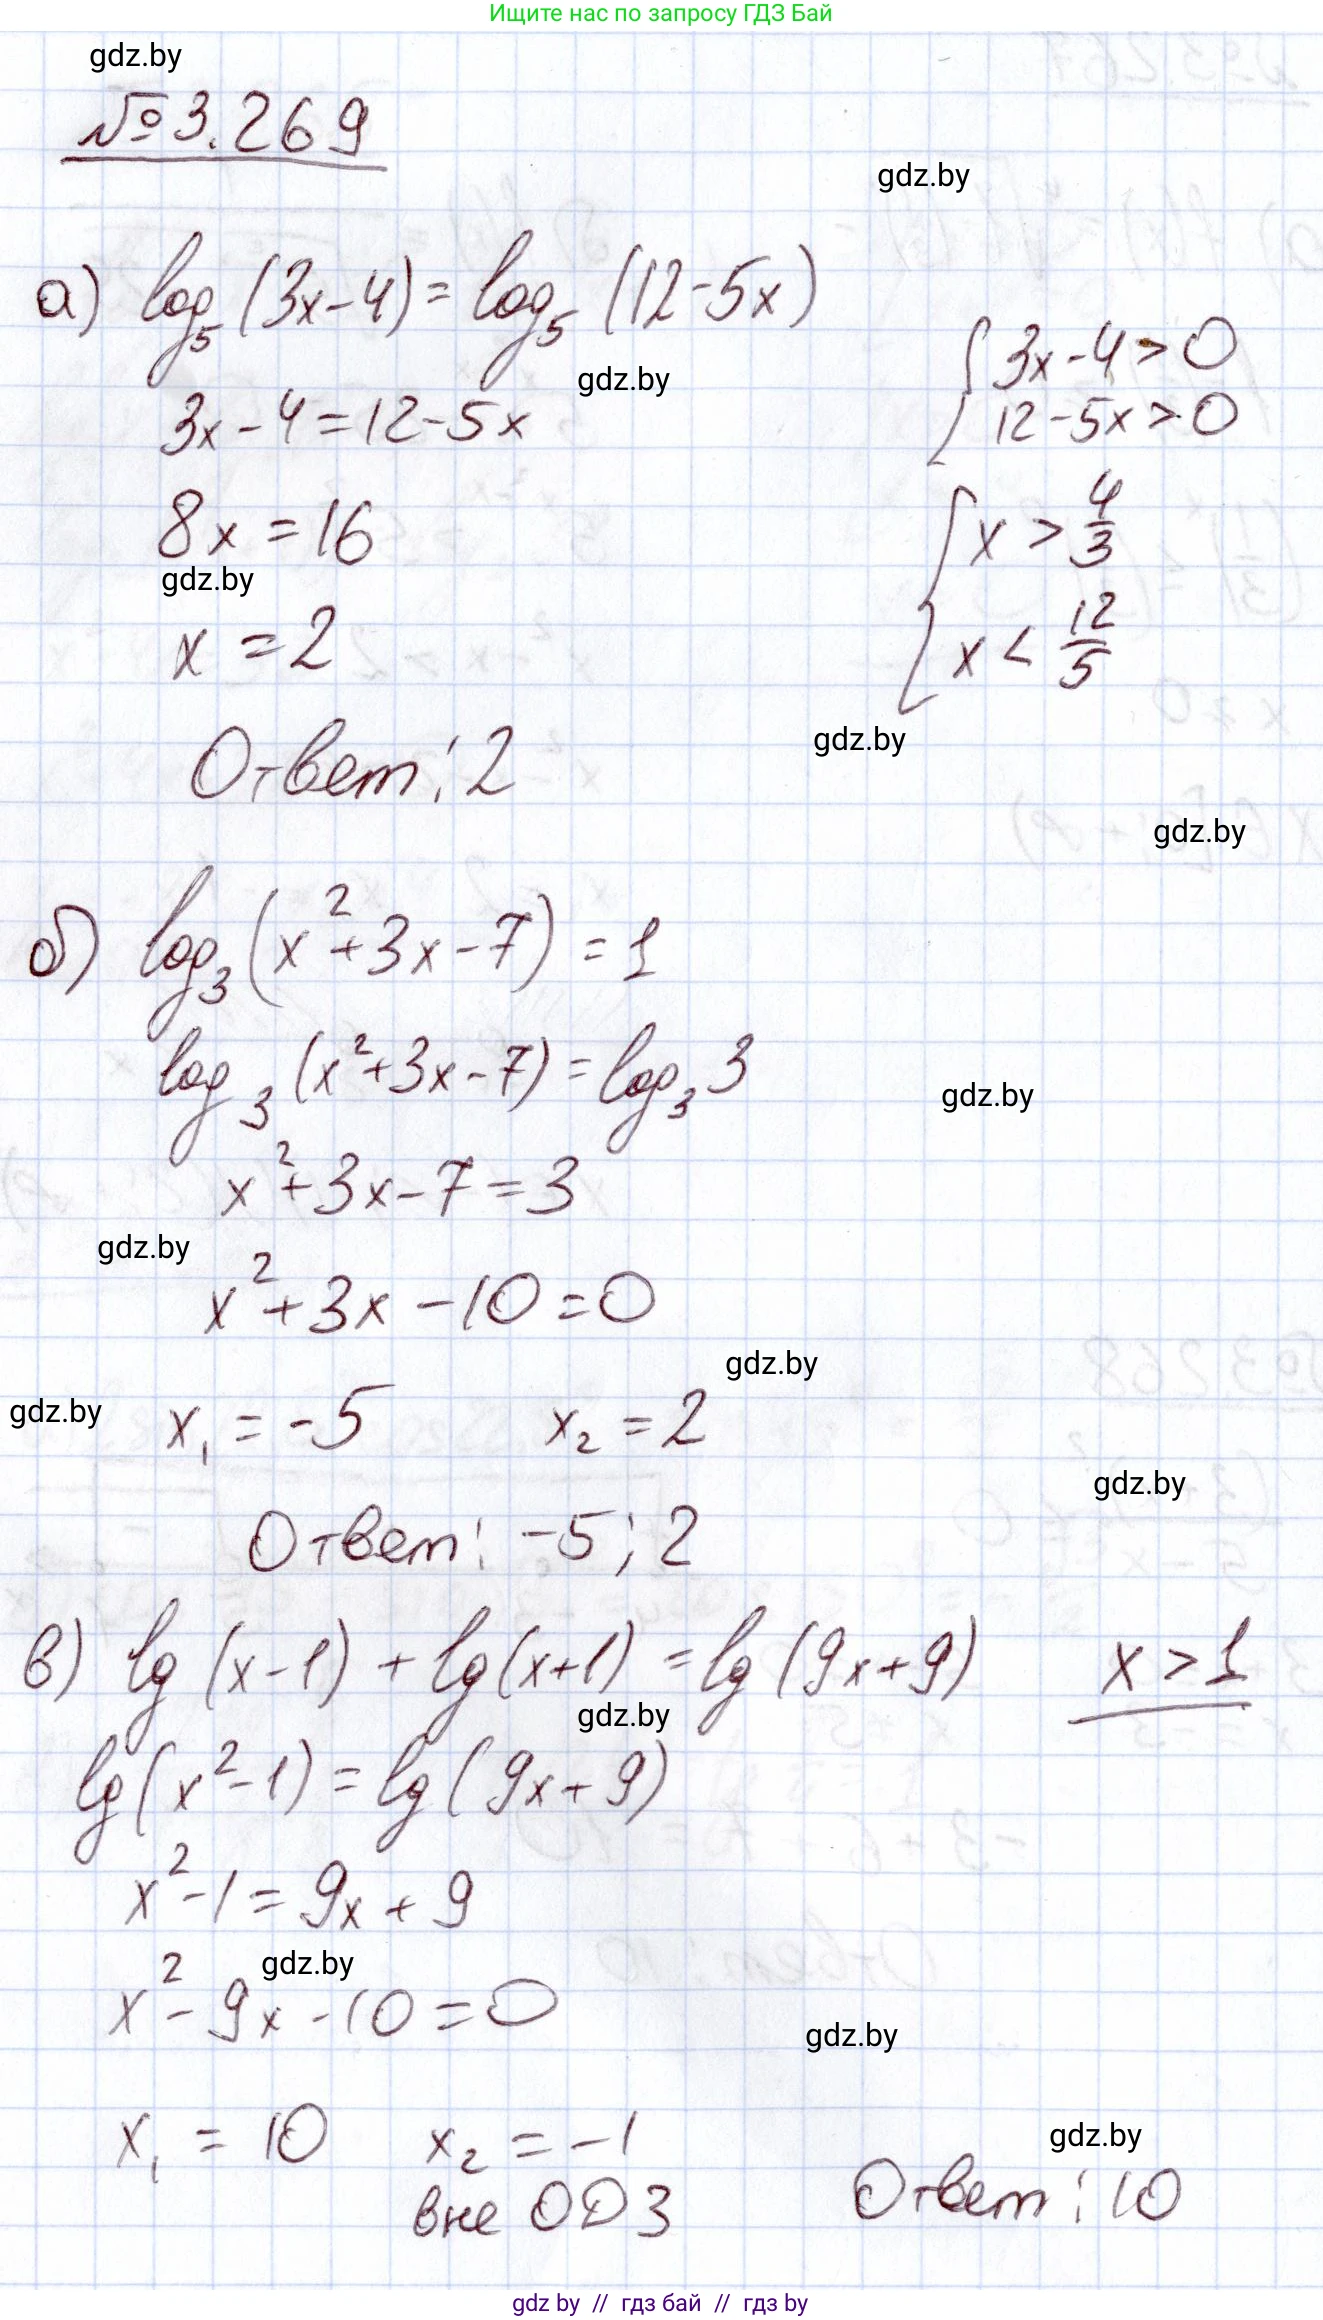 Ищите нас по запросу ГДЗ Бай
gdz.by
№3.269
gdz.by
а) log₅(3x-4)=log₅(12-5x)
{3x-4>0
gdz.by
12-5x>0
3x-4=12-5x
8x=16
{x>4/3
gdz.by
x=2
x<12/5
gdz.by
Ответ: 2
gdz.by
б) log₃(x²+3x-7)=1
log₃(x²+3x-7)=log₃3
gdz.by
x²+3x-7=3
gdz.by
x²+3x-10=0
gdz.by
gdz.by
x₁=-5 x₂=2
gdz.by
Ответ: -5; 2
в) lg(x-1)+lg(x+1)=lg(9x+9) x>1
gdz.by
lg(x²-1)=lg(9x+9)
x²-1=9x+9
gdz.by
x²-9x-10=0
gdz.by
x₁=10 x₂=-1
gdz.by
вне ОДЗ
Ответ: 10
gdz by // гдз бай // гдз by